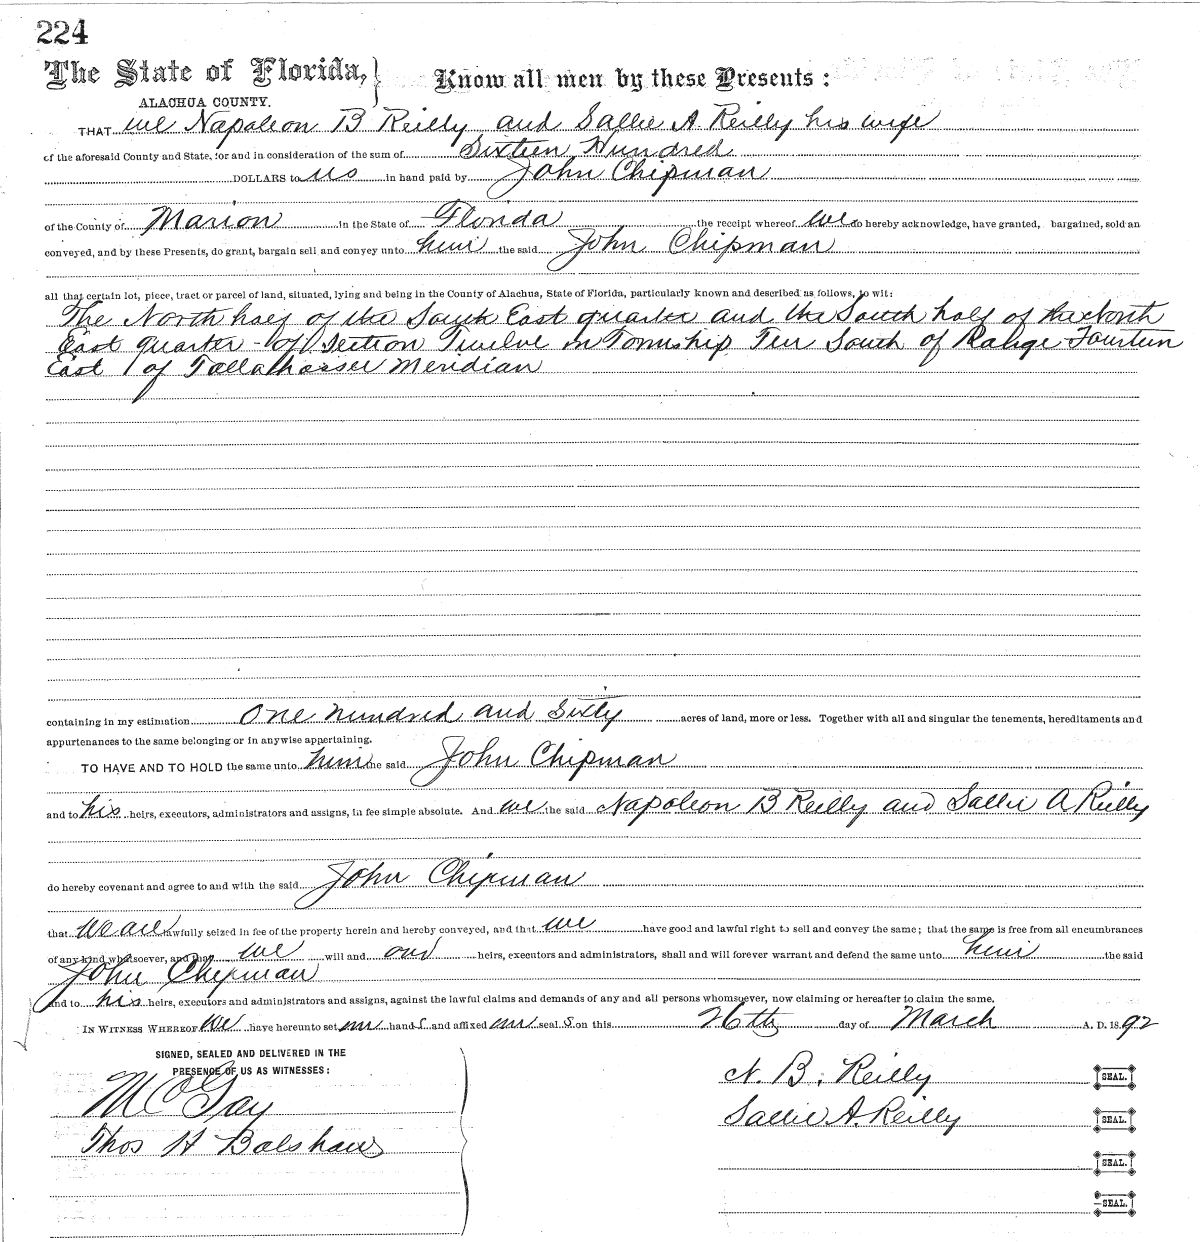 224
The State of Florida,} Know all men by these Presents:
ALACHUA COUNTY.
THAT we Napoleon B Reilly and Sallie A Reilly his wife
of the aforesaid County and State, for and in consideration of the sum of Sixteen Hundred
DOLLARS to us in hand paid by John Chipman
of the County of Marion in the State of Florida the receipt whereof we do hereby acknowledge, have granted, bargained, sold an
conveyed, and by these Presents, do grant, bargain sell and convey unto him the said John Chipman
all that certain lot, piece, tract or parcel of land, situated, lying and being in the County of Alachua, State of Florida, particularly known and described as follows, to wit:
The North half of the South East quarter and the South half of the North
East quarter - of Section Twelve in Township Ten South of Range Fourteen
East of Tallahassee Meridian
containing in my estimation One hundred and Sixty acres of land, more or less. Together with all and singular the tenements, hereditaments and
appurtenances to the same belonging or in anywise appertaining.
TO HAVE AND TO HOLD the same unto him the said John Chipman
and to his heirs, executors, administrators and assigns, in fee simple absolute. And we the said Napoleon B Reilly and Sallie A Reilly
do hereby covenant and agree to and with the said John Chipman
that we are lawfully seized in fee of the property herein and hereby conveyed, and that we have good and lawful right to sell and convey the same; that the same is free from all encumbrances
of any kind whatsoever, and that we will and our heirs, executors and administrators, shall and will forever warrant and defend the same unto him the said
John Chipman
and to his heirs, executors and administrators and assigns, against the lawful claims and demands of any and all persons whomsoever, now claiming or hereafter to claim the same.
IN WITNESS WHEREOF We have hereunto set our hand s and affixed our seal s on this 26th day of March A. D. 1892
SIGNED, SEALED AND DELIVERED IN THE
PRESENCE OF US AS WITNESSES:
N. B. Reilly SEAL.
M C Gay
Sallie A. Reilly SEAL.
Thos H Balshaw
SEAL.
SEAL.